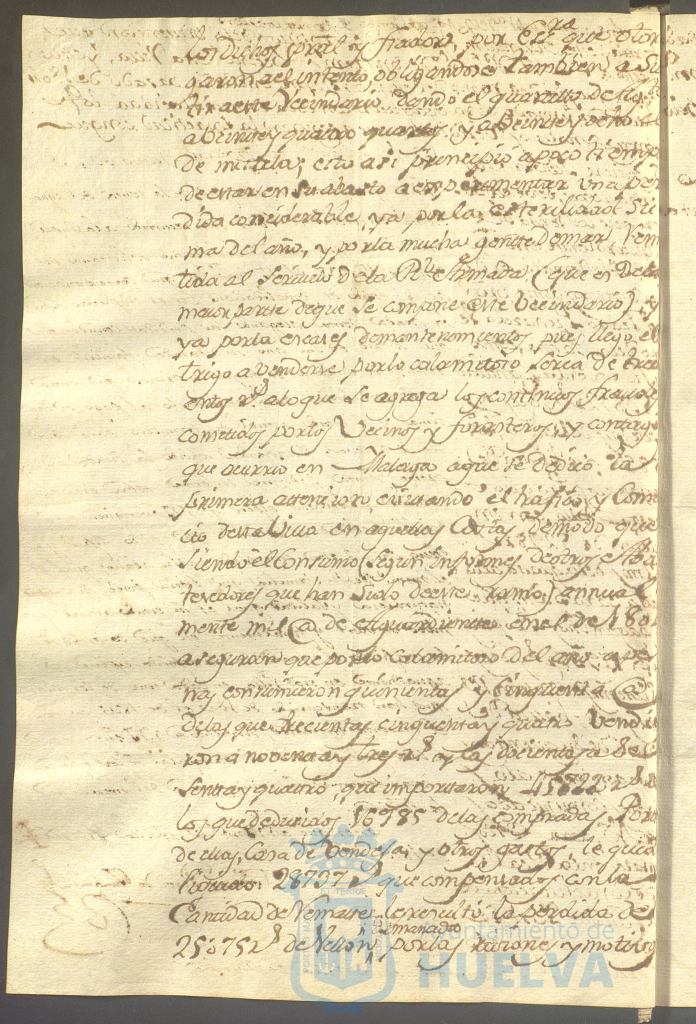 los dichos pral y fiador, por Esra que otor
garon al intento, obligandose tambien a Sur
tir a este Vecindario, dando el quartillo de
a Veinte y quatro quartos, y a Veinte y ocho
de mistela; esto asi principio a poco tiempo
de estar en su abasto a experimentar una per
dida considerable, ya por la esterilidad Su
ma del año, y por la mucha gente de mar, remi
tida al servicio de la Rl Armada (que es de la
maior parte de que se compone este Vecindario) y
ya por la escases de mantenimientos, pues llego el
trigo a venderse por lo calamitoso serca de trec
entos rs a lo que se agrega los continuos fraudes
cometidos por los Vecinos y forasteros, y contagio
que ocurrio en Malaga a que se dedico la
primera attencion, evitando el trafico y Comer
cio de esta Villa en aquellas Costas, de modo que
siendo el Consumo (segun informes de otros Abas
tecedores que han sido de este ramo) annual
mente mil @ de Aguardiente en el de 180
aseguran que por lo calamitoso del año, ape
nas consumieron quinientas y cinquenta @
de las que trecientas cinquenta y quatro Vendie
ron a noventa y tres rs y las docientas a
senta y quatro, que importaron 45822 rs de
los que deducidos 16985 de las compradas, Porte
de ellas, Casa de Vendeja, y otros gastos, le queda
liquido 28737 rs que compensadas con la
Cantidad de Remate le resulto la perdida de
25075 rs de Vellon, dimanado por las razones y motivos
Ayuntamiento de
HUELVA